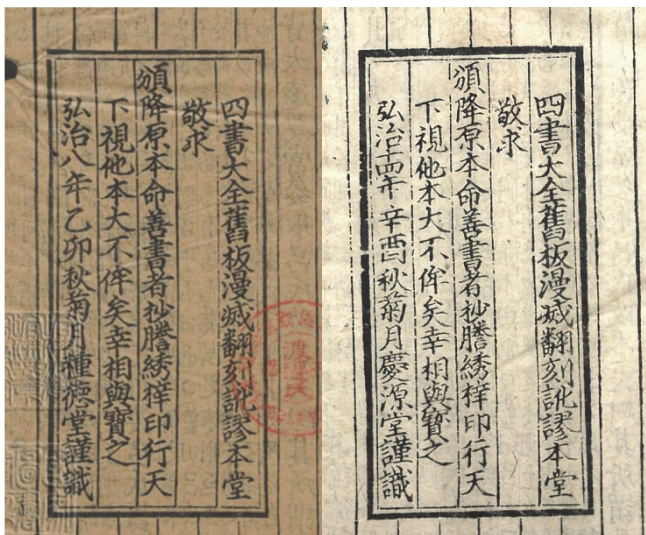 四書大全舊板漫滅翻刻訛謬本堂
敬求
頒降原本命善書者抄謄綉梓印行天
下視他本大不侔矣幸相與寶之
弘治八年乙卯秋菊月種德堂謹識
四書大全舊板漫滅翻刻訛謬本堂
敬求
頒降原本命善書者抄謄綉梓印行天
下視他本大不侔矣幸相與寶之
弘治十四年辛酉秋菊月慶源堂謹識